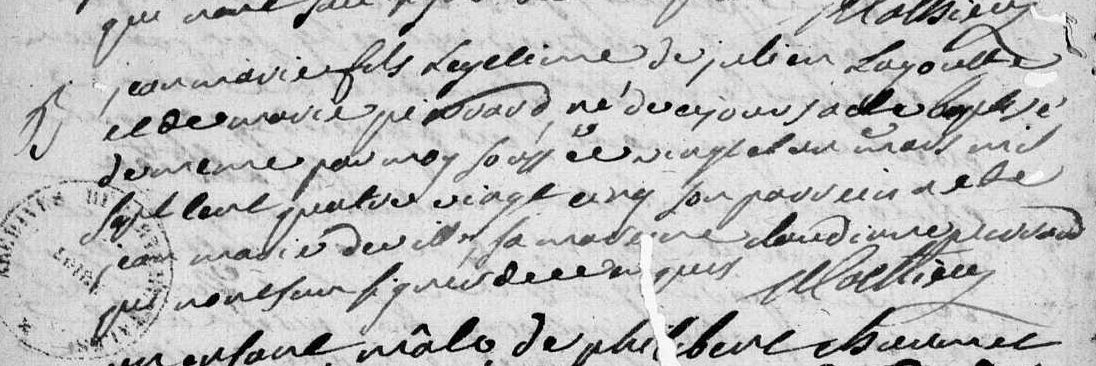 qui n'ont scu Mathieu
B
jean marie fils legitime de julien Lagoutte
et de marie perward né de ce jours a été baptisé
de meme par moy souss é ce vingt et un mars mil
sept cent quatre vingt cinq son parrein a eté
jean marie deville sa mareine claudinne perward
qui n'ont scu signer de ce enquis Mathieu
un enfant mâle de philibert
ARCHIVES
LOIRE